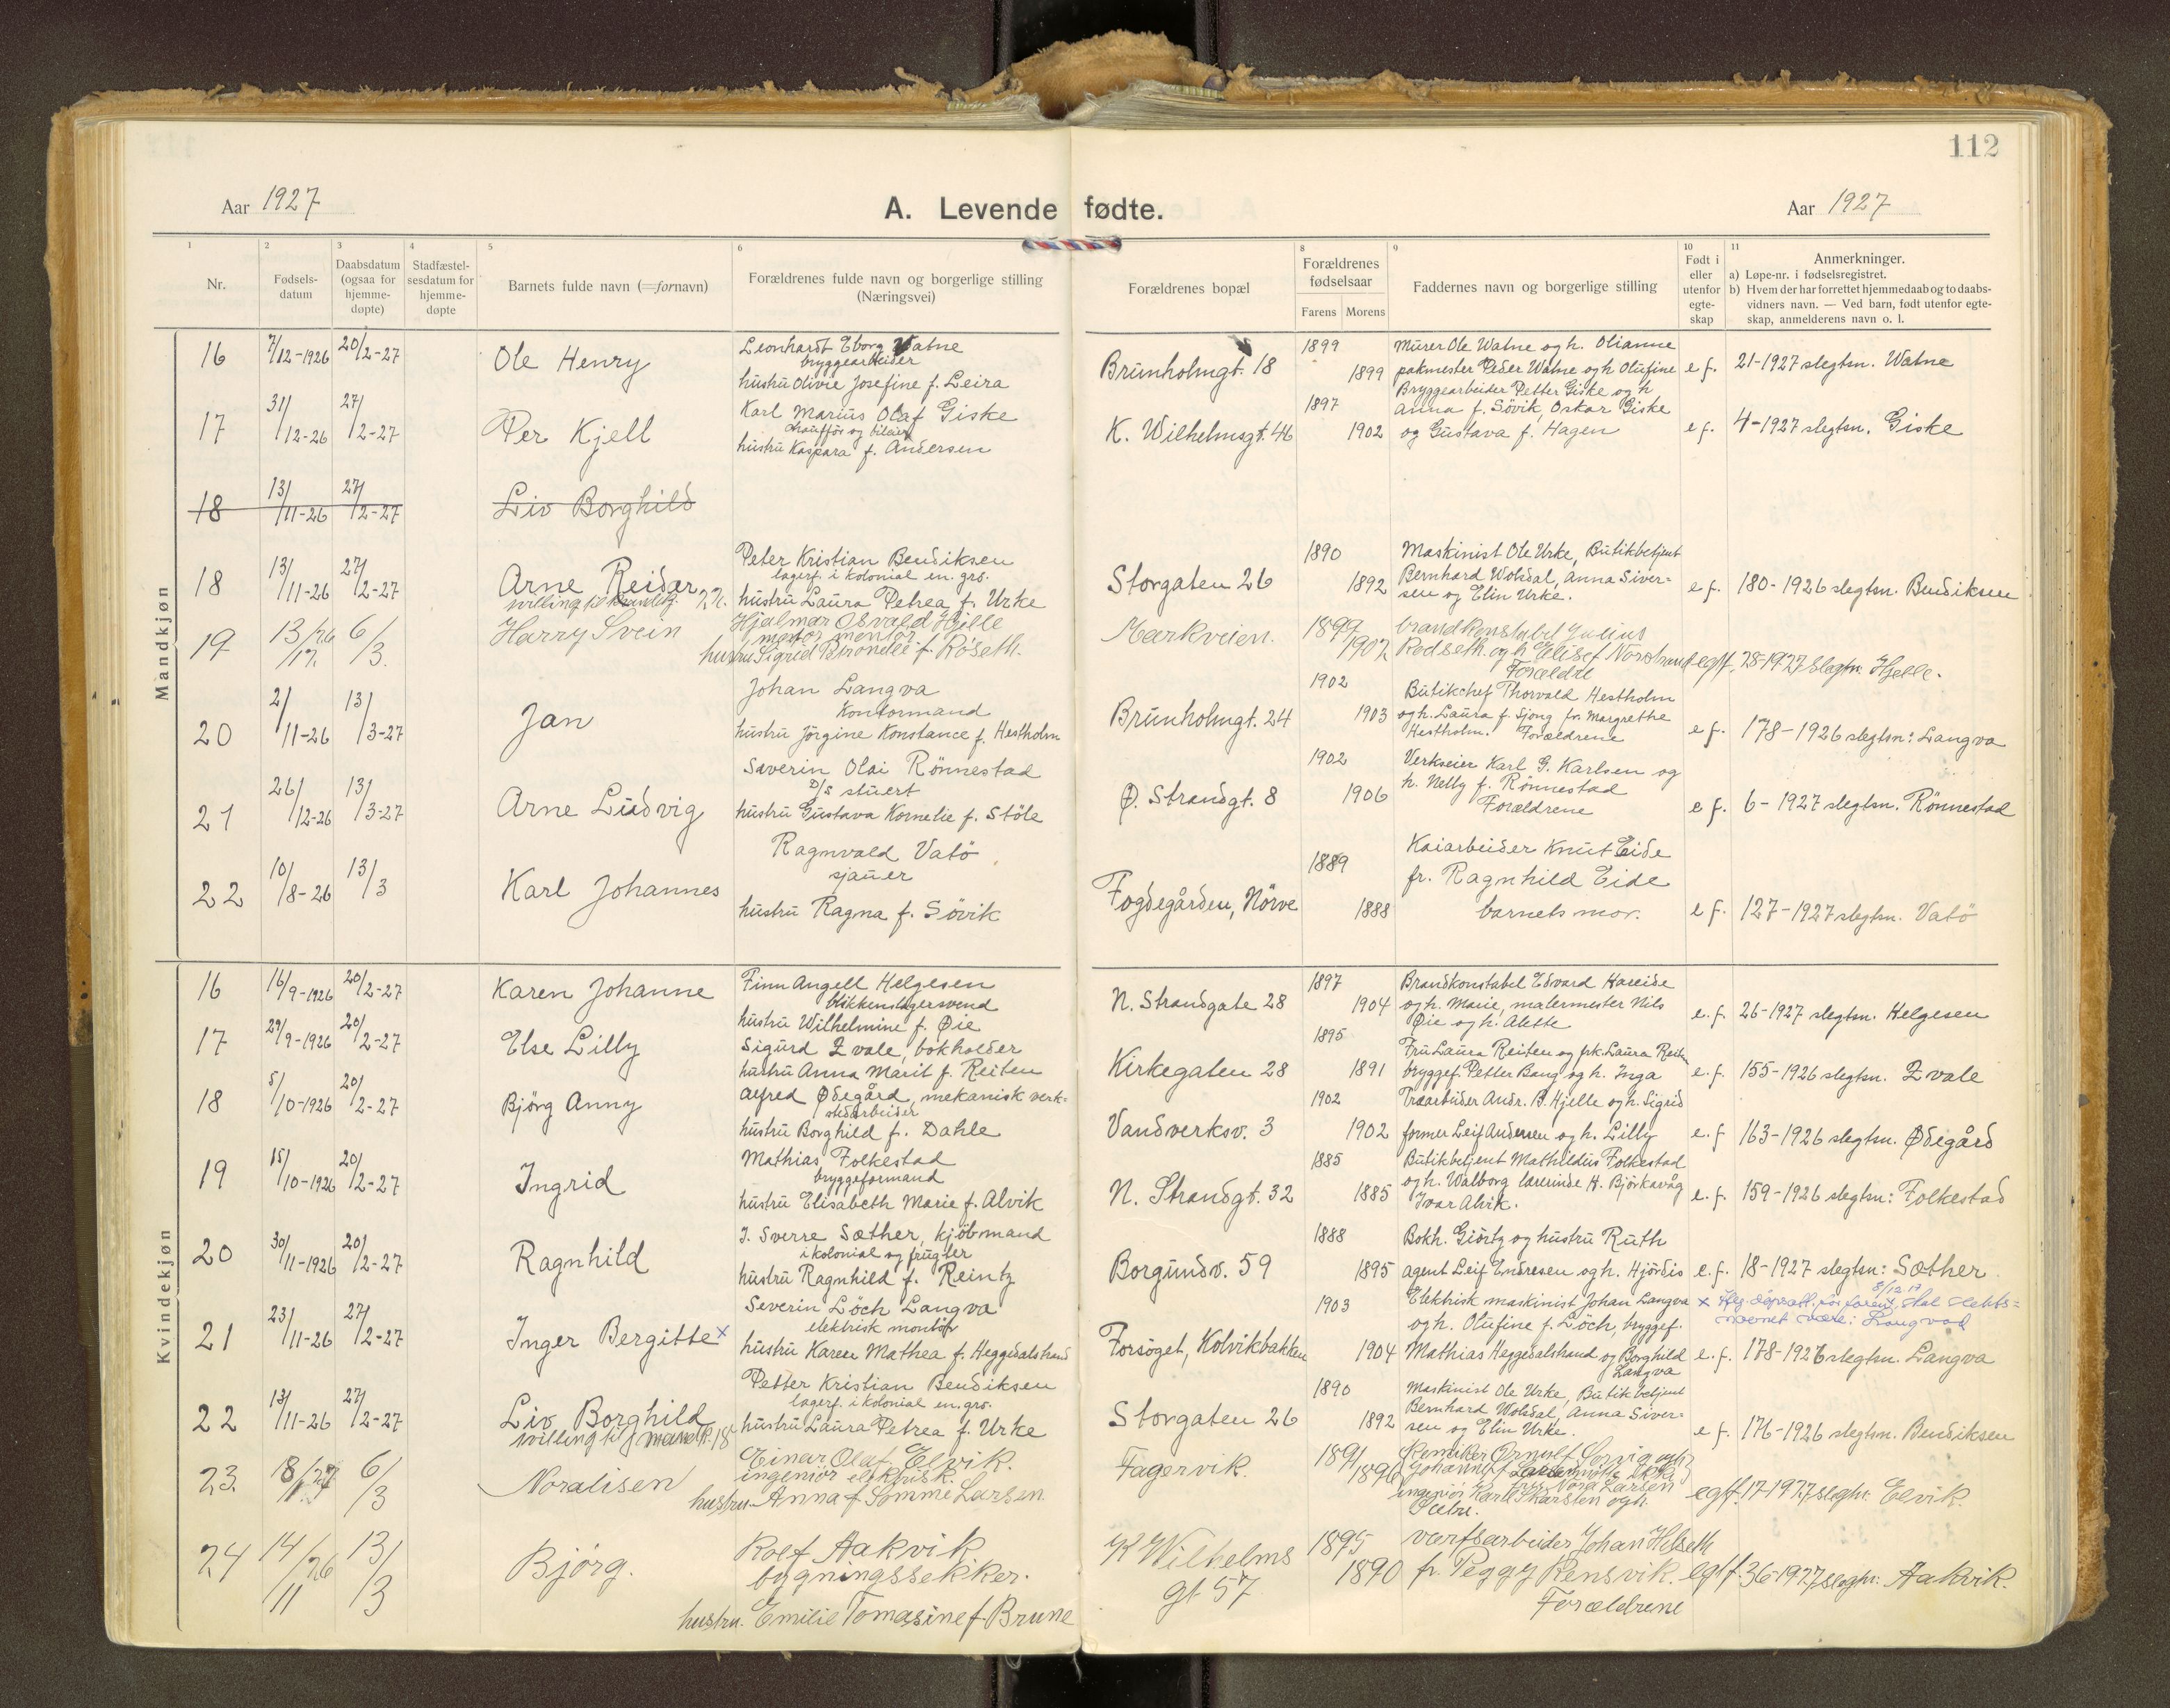 112
Aar 1927
A. Levende fødte.
Aar 1927
1
2
3
4
5
6
8
9
10
11
Nr.
Fødsels-
datum
Daabsdatum
(ogsaa for
hjemme-
døpte)
Stadfæstel-
sesdatum for
hjemme-
døpte
Barnets fulde navn (=fornavn)
Forældrenes fulde navn og borgerlige stilling
(Næringsvei)
Forældrenes bopæl
Forældrenes
fødselsaar
Farens Morens
Faddernes navn og borgerlige stilling
Født i
eller
utenfor
egte-
skap
Anmerkninger.
a) Løpe-nr. i fødselsregistret.
b) Hvem der har forrettet hjemmedaab og to daabs-
vidners navn. — Ved barn, født utenfor egte-
skap, anmelderens navn o. l.
Mandkjøn
16 7/12-1926 20/2-27 Ole Henry
Leonhardt Eborg Watne
bryggearbeider
hustru Olivie Josefine f. Leira
Brunholmgt. 18
1899
1899
Murer Ole Watne og h. Olianne
pakmester Peder Watne og h Olufine
e f. 21-1927 slegtsn. Watne
17 31/12-26 27/2-27 Per Kjell
Karl Marius Olaf Giske
chauffør og bileier
hustru Kaspara f. Andersen
K. Wilhelmsgt. 46
1897
1902
Bryggearbeider Petter Giske og h
Anna f. Sövik, Oskar Giske
og Gustava f. Hagen
e f. 4-1927 slegtsn. Giske
18 13/11-26 27/2-27 Liv Borghild
18 13/11-26 27/2-27 Arne Reidar
tvilling til kvindekj. 22.
Peter Kristian Bendiksen
lagerf. i kolonial en. gros.
hustru Laura Petrea f. Urke
Storgaten 26
1890
1892
Maskinist Ole Urke, Butikbetjent
Bernhard Wolsdal, Anna Siver-
sen og Elin Urke.
e f. 180-1926 slegtsn. Bendiksen
19 13/26/12. 6/3. Harry Svein
Hjalmar Osvald Hjelle
montör
hustru Sigrid Petronelle f. Röseth.
Markveien.
1899
1902
brandkonstabel Julius
Rødseth. og h Elise f Nordstrand
Forældre
egtf. 28-1927 Slegtn. Hjelle.
20 2/11-26 13/3-27 Jan
Johan Langva
Kontormand
hustru Jörgine Konstance f. Hestholm
Brunholmgt. 24
1902
1903
Butikchef Thorvald Hestholm
og h. Laura f. Sjong fr. Margrethe
Hestholm. Forældrene
e f. 178-1926 slegtsn: Langva
21 26/12-26 13/3-27 Arne Ludvig
Severin Olai Rönnestad
D/S stuert
hustru Gustava Kornelie f. Støle
Ø. Strandgt. 8
1902
1906
Verkseier Karl G. Karlsen og
h. Nelly f. Rønnestad
Forældrene
e f. 6-1927 slegtsn. Rönnestad
22 10/8-26 13/3 Karl Johannes
Ragnvald Vatö
sjauer
hustru Ragna f. Sövik
Fogdegården, Nörve
1889
1888
Kaiarbeider Knut Eide
fr. Ragnhild Eide
barnets mor.
e f. 127-1927 slegtsn. Vatö
Kvindekjøn
16 16/9-1926 20/2-27 Karen Johanne
Finn Angell Helgesen
blikkenslagersvend
hustru Wilhelmine f. Øie
N. Strandgate 28
1897
1904
Brandkonstabel Edvard Hareide
og h. Marie, malermester Nils
Øie og h. Alette
e. f. 26-1927 slegtsn. Helgesen
17 29/9-1926 20/2-27 Else Lilly
Sigurd Zvale, bokholder
hustru Anna Marit f. Reiten
Kirkegaten 28
1895
1891
Fru Laura Reiten og frk. Laura Reiten
bryggef. Petter Bang og h. Inga
e. f. 155-1926 slegtsn. Zvale
18 5/10-1926 20/2-27 Björg Anny
Alfred Ødegård, mekanisk verk-
stedarbeider
hustru Borghild f. Dahle
Vandverksv. 3
1902
1902
Træarbeider Andr. B. Hjelle og h. Sigrid
former Leif Andersen og h. Lilly
e. f 163-1926 slegtsn. Ødegård
19 15/10-1926 20/2-27 Ingrid
Mathias Folkestad
bryggeformand
hustru Elisabeth Marie f. Alvik
N. Strandgt. 32
1885
1885
Butikbetjent Mathildus Folkestad
og h. Walborg lærerinde H. Björkavåg
Ivar Alvik.
e. f. 159-1926 slegtsn: Folkestad
20 30/11-1926 20/2-27 Ragnhild
J. Sverre Sæther, kjöbmand
i kolonial og frugter
hustru Ragnhild f. Reintz
Borgundv. 59
1888
1895
Bokh. Giörtz og hustru Ruth
agent Leif Endresen og h. Hjördis
e. f. 18-1927 slegtsn: Sæther
21 23/11-26 27/2-27 Inger Bergitte x
Severin Löch Langva
elektrisk montör
hustru Karen Mathea f. Heggdalstrand
Forsöget, Kolvikbakken
1903
1904
Elektrisk maskinist Johan Langva
og h. Olufine f. Löch, bryggef.
Mathias Heggdalstrand og Borghild
Langva
navnet være: Langvad
e. f. 178-1926 slegtsn. Langva
22 13/11-26 27/2-27 Liv Borghild
tvilling til mandk. 18
Petter Kristian Bendiksen
lagerf. i kolonial en. gros.
hustru Laura Petrea f. Urke
Storgaten 26
1890
1892
Maskinist Ole Urke, Butikbetjent
Bernhard Wolsdal, Anna Siver-
sen og Elin Urke.
e f. 176-1926 slegtsn. Bendiksen
23. 18/1 27 6/3 Noralisen
Einar Olaf Elvik.
ingeniør elektrisk
hustru Anna f Somme Larsen
Fagervik.
1891
1896
Nora Larsen
ingeniör Karl Karsten og h.
egtf. 17-1927 slegtn. Elvik.
24 14/26/11 13/3 Bjørg.
Rolf Aakvik
bygningssekker.
hustru. Emilie Tomasine f. Brune
K Wilhelms
gt 57
1895
1890
værftsarbeider Johan Helseth
fr. Peggy Rensvik.
Forældrene
egtf. 36-1927 slegtn: Aakvik.